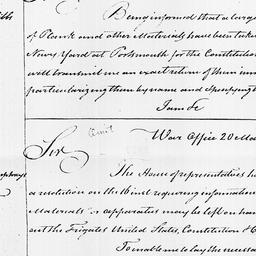 Being informed that a large
of Plank and other Materials have been taken
Navy Yard at Portsmouth for the Constitution
will transmit me an exact return of them
particularizing them by name and Specifying
I am &c
War Office 20 Mar
Sir
The House of representatives ha
a resolution on the Kind requiring information
Materials or apparatus may be left on han
out the Frigates United States, Constitution & C
To enable me to lay the necessa